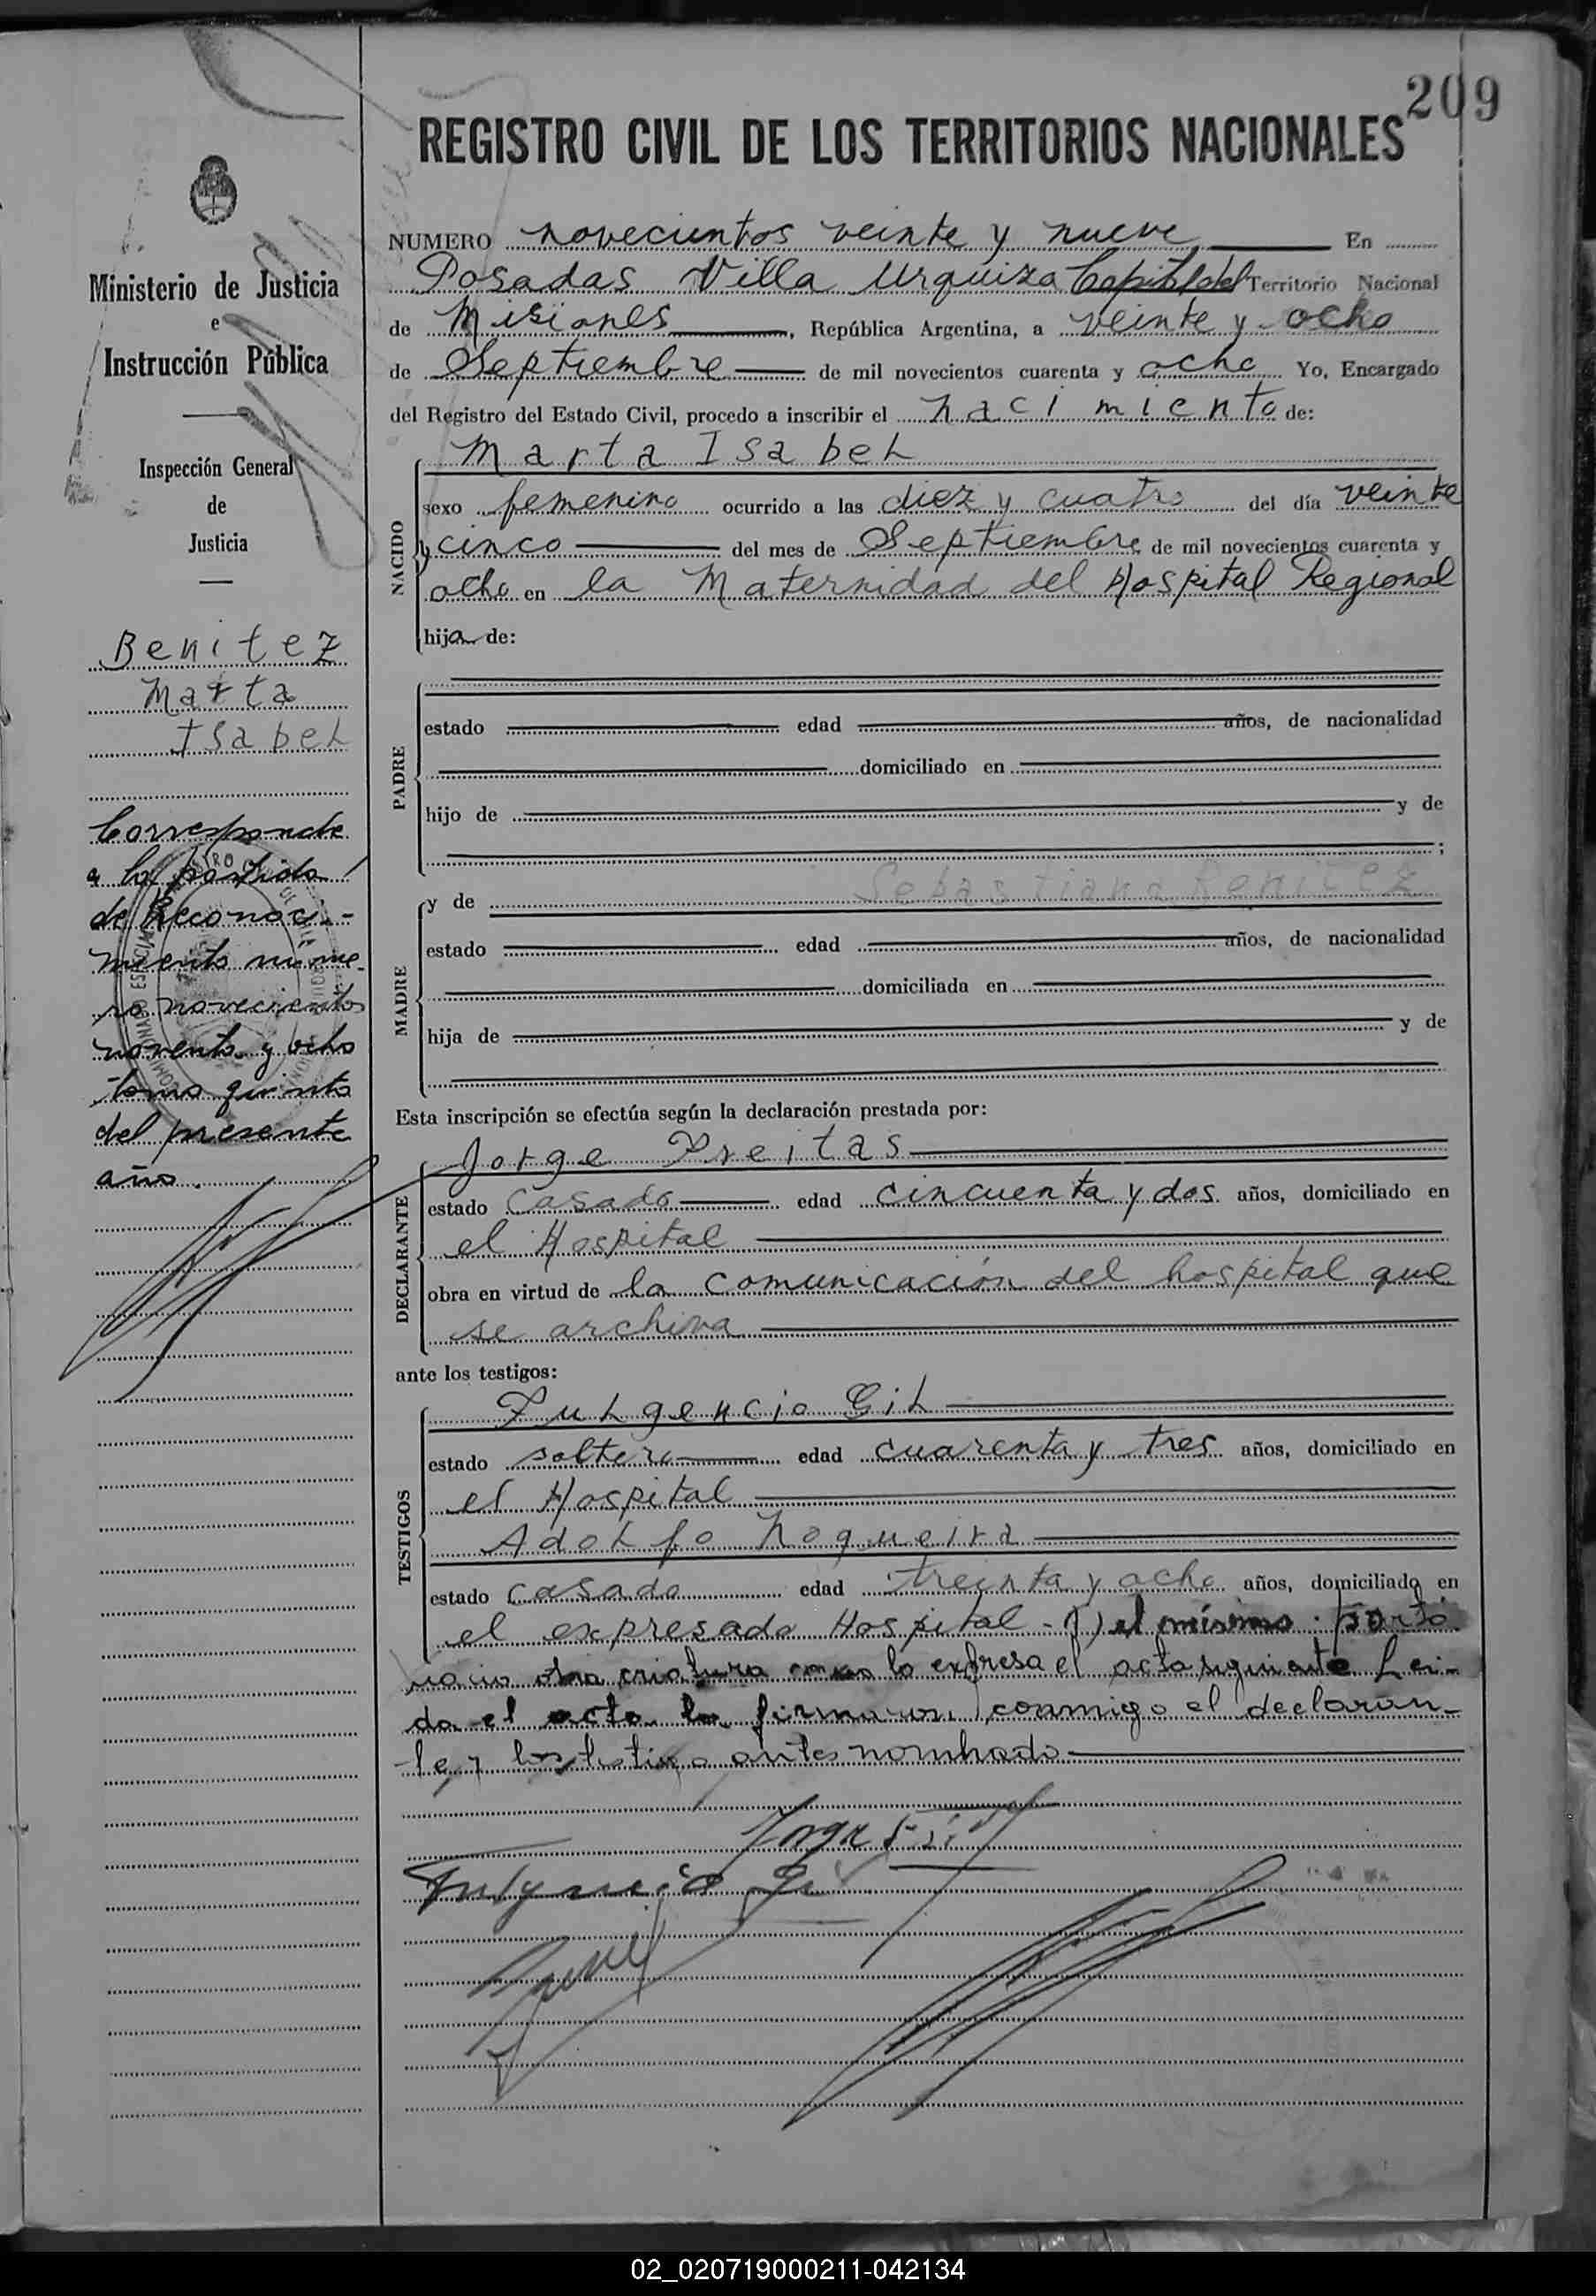 209
REGISTRO CIVIL DE LOS TERRITORIOS NACIONALES
Ministerio de Justicia
e
Instrucción Pública
Inspección General
de
Justicia
Benitez
Marta
Isabel
Corresponde
a la partida
de Reconoci-
miento núme-
ro novecientos
noventa y ocho
tomo quinto
del presente
año.
NUMERO novecientos veinte y nueve En
Posadas Villa Urquiza Capital del Territorio Nacional
de Misiones, República Argentina, a veinte y ocho
de Septiembre de mil novecientos cuarenta y ocho Yo, Encargado
del Registro del Estado Civil, procedo a inscribir el nacimiento de:
NACIDO
Marta Isabel
sexo femenino ocurrido a las diez y cuatro del día veinte
y cinco del mes de Septiembre de mil novecientos cuarenta y
ocho en la Maternidad del Hospital Regional
hija de:
PADRE
estado edad años, de nacionalidad
domiciliado en
hijo de y de
;
MADRE
y de Sebastiana Benitez
estado edad años, de nacionalidad
domiciliada en
hija de y de
Esta inscripción se efectúa según la declaración prestada por:
DECLARANTE
Jorge Freitas
estado casado edad cincuenta y dos años, domiciliado en
el Hospital
obra en virtud de la comunicación del hospital que
se archiva
ante los testigos:
TESTIGOS
Fulgencio Gil
estado soltero edad cuarenta y tres años, domiciliado en
el Hospital
Adolfo Nogueira
estado casado edad treinta y ocho años, domiciliado en
el expresado Hospital - () el mismo parto
nacio otra criatura como lo expresa el acta siguiente Lei-
da el acta la firmaron conmigo el declaran-
te y los testigo antes nombrado
Fulgencio Gil
02_020719000211-042134